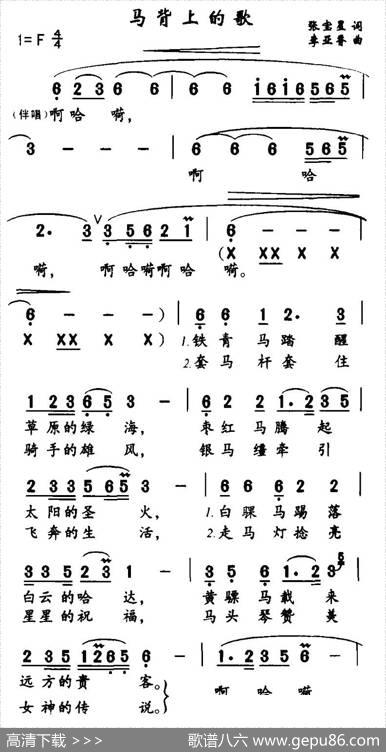 马背上的歌
1=F 4/4
张宝星 词
李亚普 曲
6 2 3 6 6 6 - | 6 6 6 1 6 1 6 5 6 5
(伴唱)啊哈嗬,
3 - - - | 6 6 6 5 6 5
啊 哈
2· 3 3 5 6 2 1 | 6 - - -
(X XX XX X
嗬, 啊哈嗬啊哈 嗬。
6 - - - ) | 6 6 1 2· 3
X XX XX X ) | 1.铁青马踏醒
2.套马杆套住
1 2 3 6 5 3 - | 6 2 2 1· 2 3 5
草原的绿 海, 枣红马腾 起
骑手的雄 风, 银马缰牵 引
2 3 3 5 6 5 3 - | 6 2 2 5 5 6
太阳的圣 火, 1.白骒马踢落
飞奔的生 活, 2.走马灯捻亮
3 3 5 2 3 1 - | 3 5 6 1· 2 3
白云的哈 达, 黄骠马载 来
星星的祝 福, 马头琴赞 美
2 3 5 1 2 6 5 6 - | 1· 2 3 5 6 -
远方的贵 客。 啊 哈 嗬
女神的传 说。
高清下载 >>> 歌谱八六 www.gepu86.com